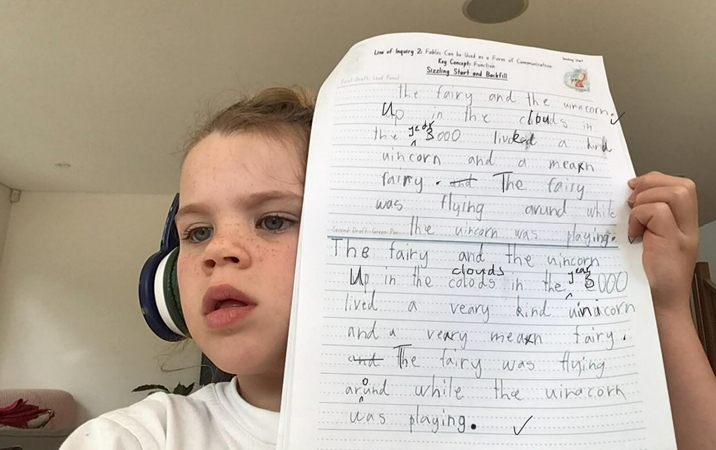 Line of Inquiry 2: Fables Can be Used as a Form of Communication
Key Concept: Function
Sizzling Start and Backfill
The fairy and the uinacorn.
Up in the clouds in
the year 3000 lived a kind
uincorn and a mean
fairy. and The fairy
was flying arund while
the uincorn was playing.
The fairy and the uincorn
Up in the colods clouds in the year 3000
lived a veary kind uinacorn
and a veary mean fairy.
and The fairy was flying
around while the uinacorn
was playing.